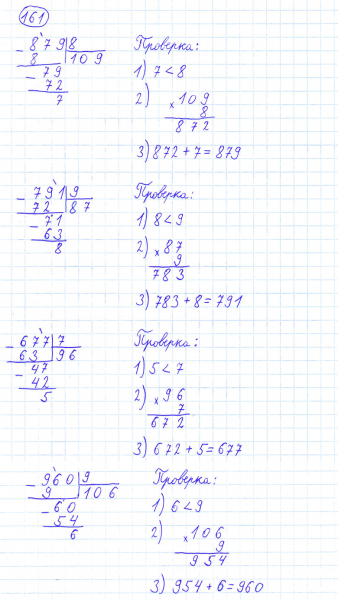 161
- 879 | 8
8 | 109
- 79
72
7
Проверка:
1) 7 < 8
2) × 109
8
872
3) 872 + 7 = 879
- 791 | 9
72 | 87
- 71
63
8
Проверка:
1) 8 < 9
2) × 87
9
783
3) 783 + 8 = 791
- 677 | 7
63 | 96
- 47
42
5
Проверка:
1) 5 < 7
2) × 96
7
672
3) 672 + 5 = 677
- 960 | 9
9 | 106
- 60
54
6
Проверка:
1) 6 < 9
2) × 106
9
954
3) 954 + 6 = 960